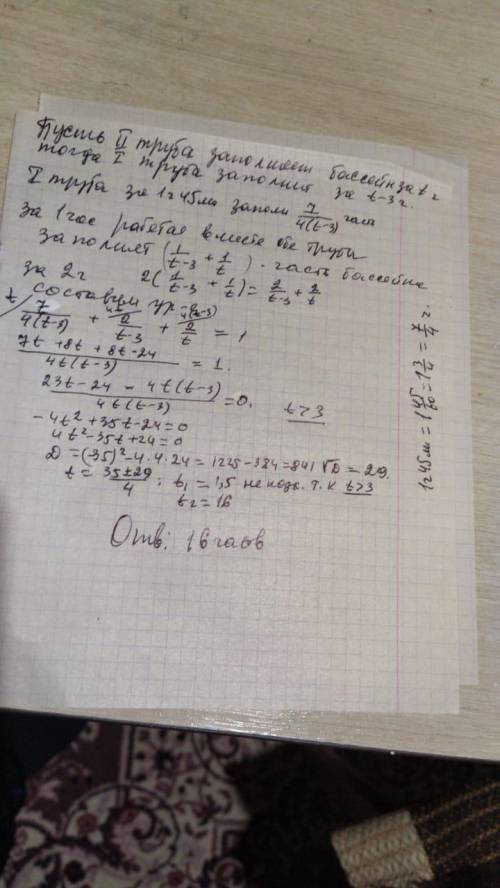 Пусть II труба заполняет бассейн за t ч
тогда I труба заполнит за t-3 ч.
I труба за 1ч 45м заполн 7/(4(t-3)) част
за 1 час работая вместе обе трубы
заполнят (1/(t-3) + 1/t) часть бассейна
за 2ч 2(1/(t-3) + 1/t) = 2/(t-3) + 2/t
составим ур-е
7/(4(t-3)) + 2/(t-3) + 2/t = 1
(7t + 8t + 8t - 24)/(4t(t-3)) = 1.
(23t - 24 - 4t(t-3))/(4t(t-3)) = 0. t>3
-4t² + 35t - 24 = 0
4t² - 35t + 24 = 0
D = (-35)² - 4·4·24 = 1225 - 384 = 841 √D = 29.
t = (35±29)/4; t₁ = 1,5 не подх. т.к t>3
t₂ = 16
Отв: 16 часов
1ч 45м = 1 45/60 = 1 3/4 = 7/4 г.